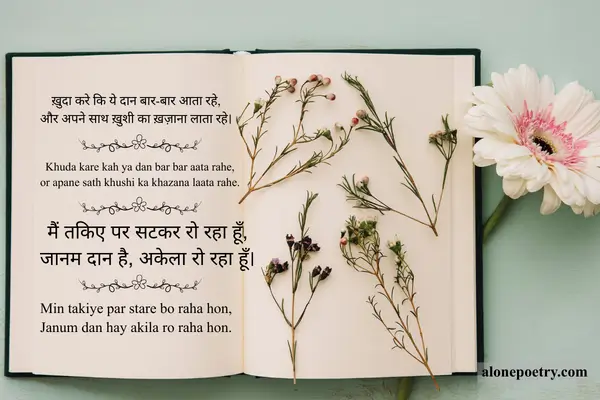 ख़ुदा करे कि ये दान बार-बार आता रहे,
और अपने साथ ख़ुशी का ख़ज़ाना लाता रहे।
Khuda kare kah ya dan bar bar aata rahe,
or apane sath khushi ka khazana laata rahe.
मैं तकिए पर सटकर रो रहा हूँ,
जानम दान है, अकेला रो रहा हूँ।
Min takiye par stare bo raha hon,
Janum dan hay akila ro raha hon.
alonepoetry.com